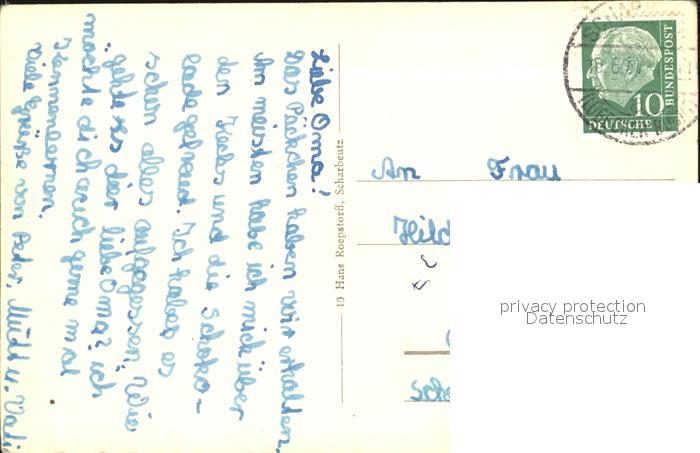 Liebe Oma!
Das Päckchen haben wir erhalten.
Am meisten habe ich mich über
den Keks und die Schoko-
lade gefreud. Ich habe es
schon alles aufgegessen. Wie
geht es dir liebe Oma? ich
möchte dich auch gerne mal
kennenlernen.
viele grüße von Peter, Mutti u. Vati
10 Hans Roepstorff, Scharbeutz
DEUTSCHE BUNDESPOST
10
An Frau
Hild
Sch
privacy protection
Datenschutz